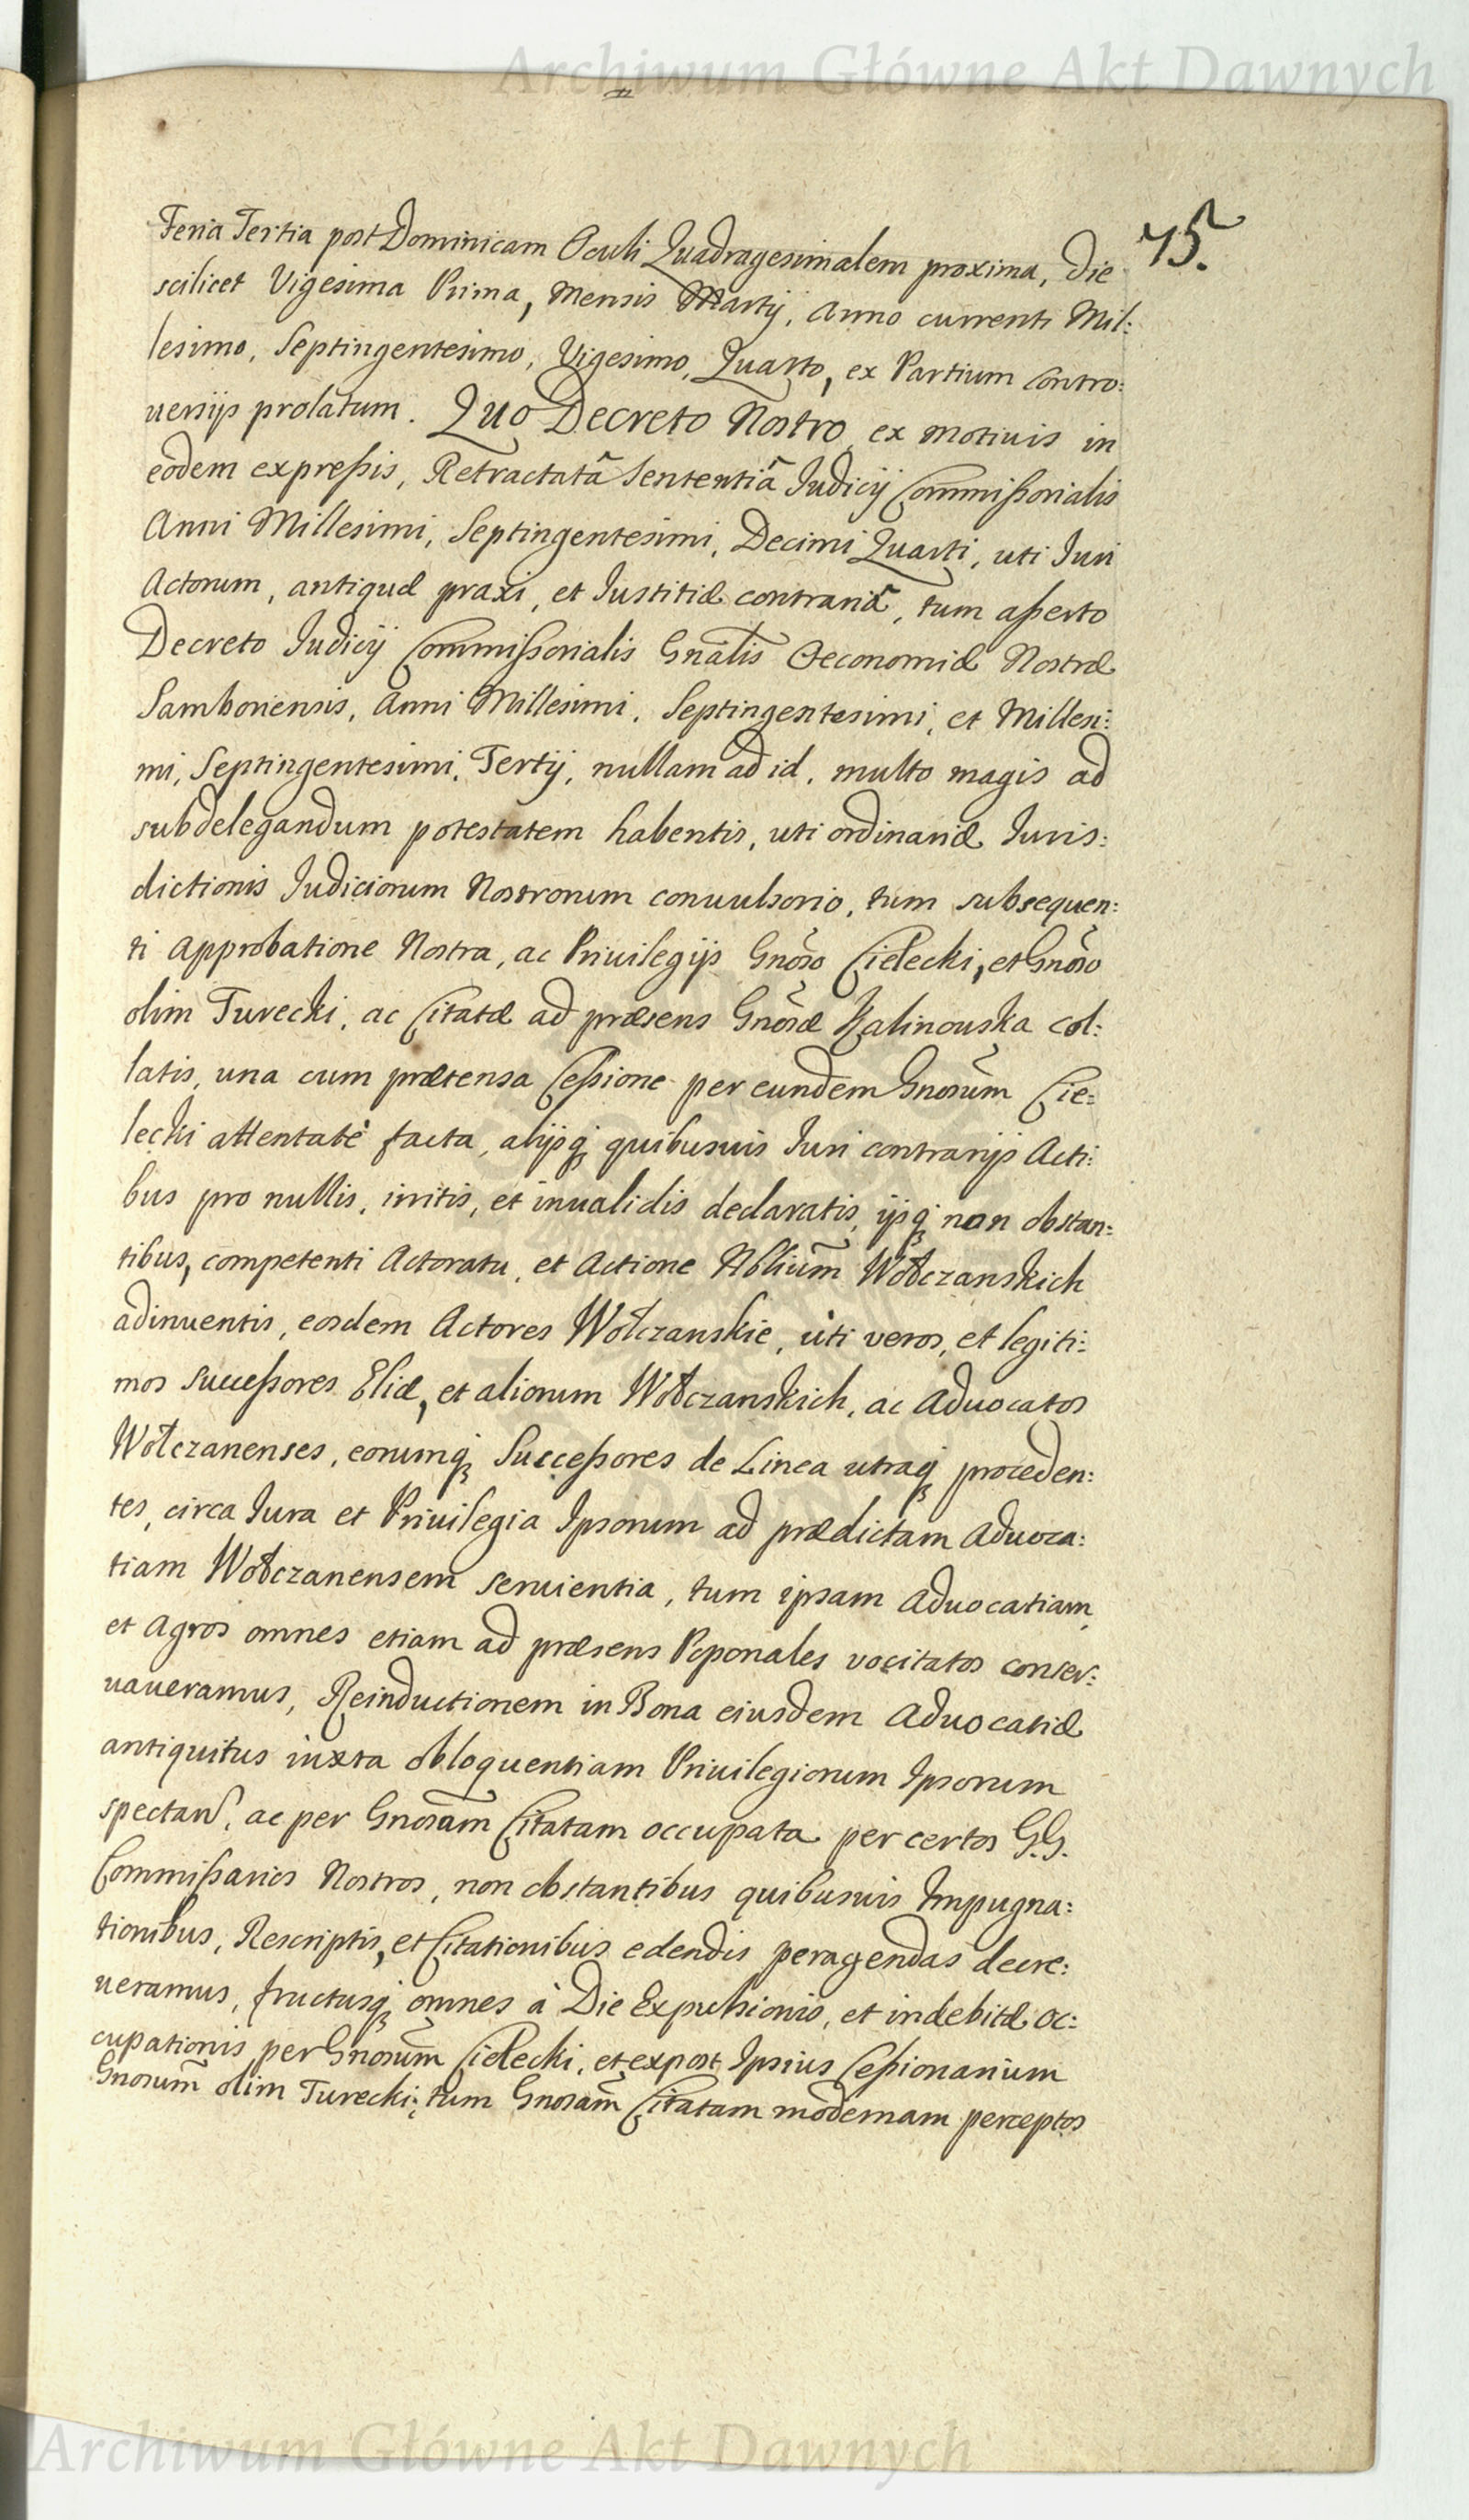 Archiwum Główne Akt Dawnych
75.
Feria Tertia post Dominicam Oculi Quadragesimalem proxima, Die
scilicet Vigesima Prima, Mensis Martij, Anno currenti Mil:
lesimo, Septingentesimo, Vigesimo, Quarto, ex Partium Contro:
uersijs prolatum. Quo Decreto Nostro ex motiuis in
eodem expreßis, Retractatã Sententiã Judicij Commißorialis
Anni Millesimi, Septingentesimi, Decimi Quarti, uti Juri
Actorum, antiquæ praxi, et Justitiæ contrariã, tum aßerto
Decreto Judicij Commißorialis Gñalis Oeconomiæ Nostræ
Samboriensis, Anni Millesimi, Septingentesimi, et Millesi:
mi, Septingentesimi, Tertij, nullam ad id, multo magis ad
subdelegandum potestatem habentis, uti ordinariæ Juris:
dictionis Judiciorum Nostrorum conuulsorio, tum subsequen:
ti Approbatione Nostra, ac Priuilegijs Gnõso Cielecki, et Gnõso
olim Turecki, ac Citatæ ad præsens Gnõsæ Kalinouska col:
latis, una cum prætensa Ceßione per eundem Gnosũm Cie:
lecki attentatè facta, alijsq; quibusuis Juri contrarijs Acti:
bus pro nullis, irritis, et inualidis declaratis, ijsq; non obstan:
tibus, competenti Actoratu, et Actione Nbliũm Wołczanskich
adinuentis, eosdem Actores Wołczanskie, uti veros, et legiti:
mos Succeßores Eliæ, et aliorum Wołczanskich, ac Aduocatos
Wołczanenses, eorumq; Succeßores de Linea utraq; proceden:
tes, circa Jura et Priuilegia Ipsorum ad prædictam Aduoca:
tiam Wołczanensem seruientia, tum ipsam Aduocatiam,
et Agros omnes etiam ad præsens Poponales vocitatos conser:
uaueramus, Reinductionem in Bona eiusdem Aduocatiæ
antiquitus iuxta obloquentiam Priuilegiorum Ipsorum
spectan, ac per Gnosãm Citatam occupata per certos G.G.
Commißarios Nostros, non obstantibus quibusuis Impugna:
tionibus, Rescriptis, et Citationibus edendis peragendas decre:
ueramus, fructusq; omnes à Die Expulsionis, et indebitæ oc:
cupationis per Gnosũm Cielecki, et expost Ipsius Ceßionarium
Gnosũm olim Turecki; tum Gnosãm Citatam modernam perceptos
Archiwum Główne Akt Dawnych